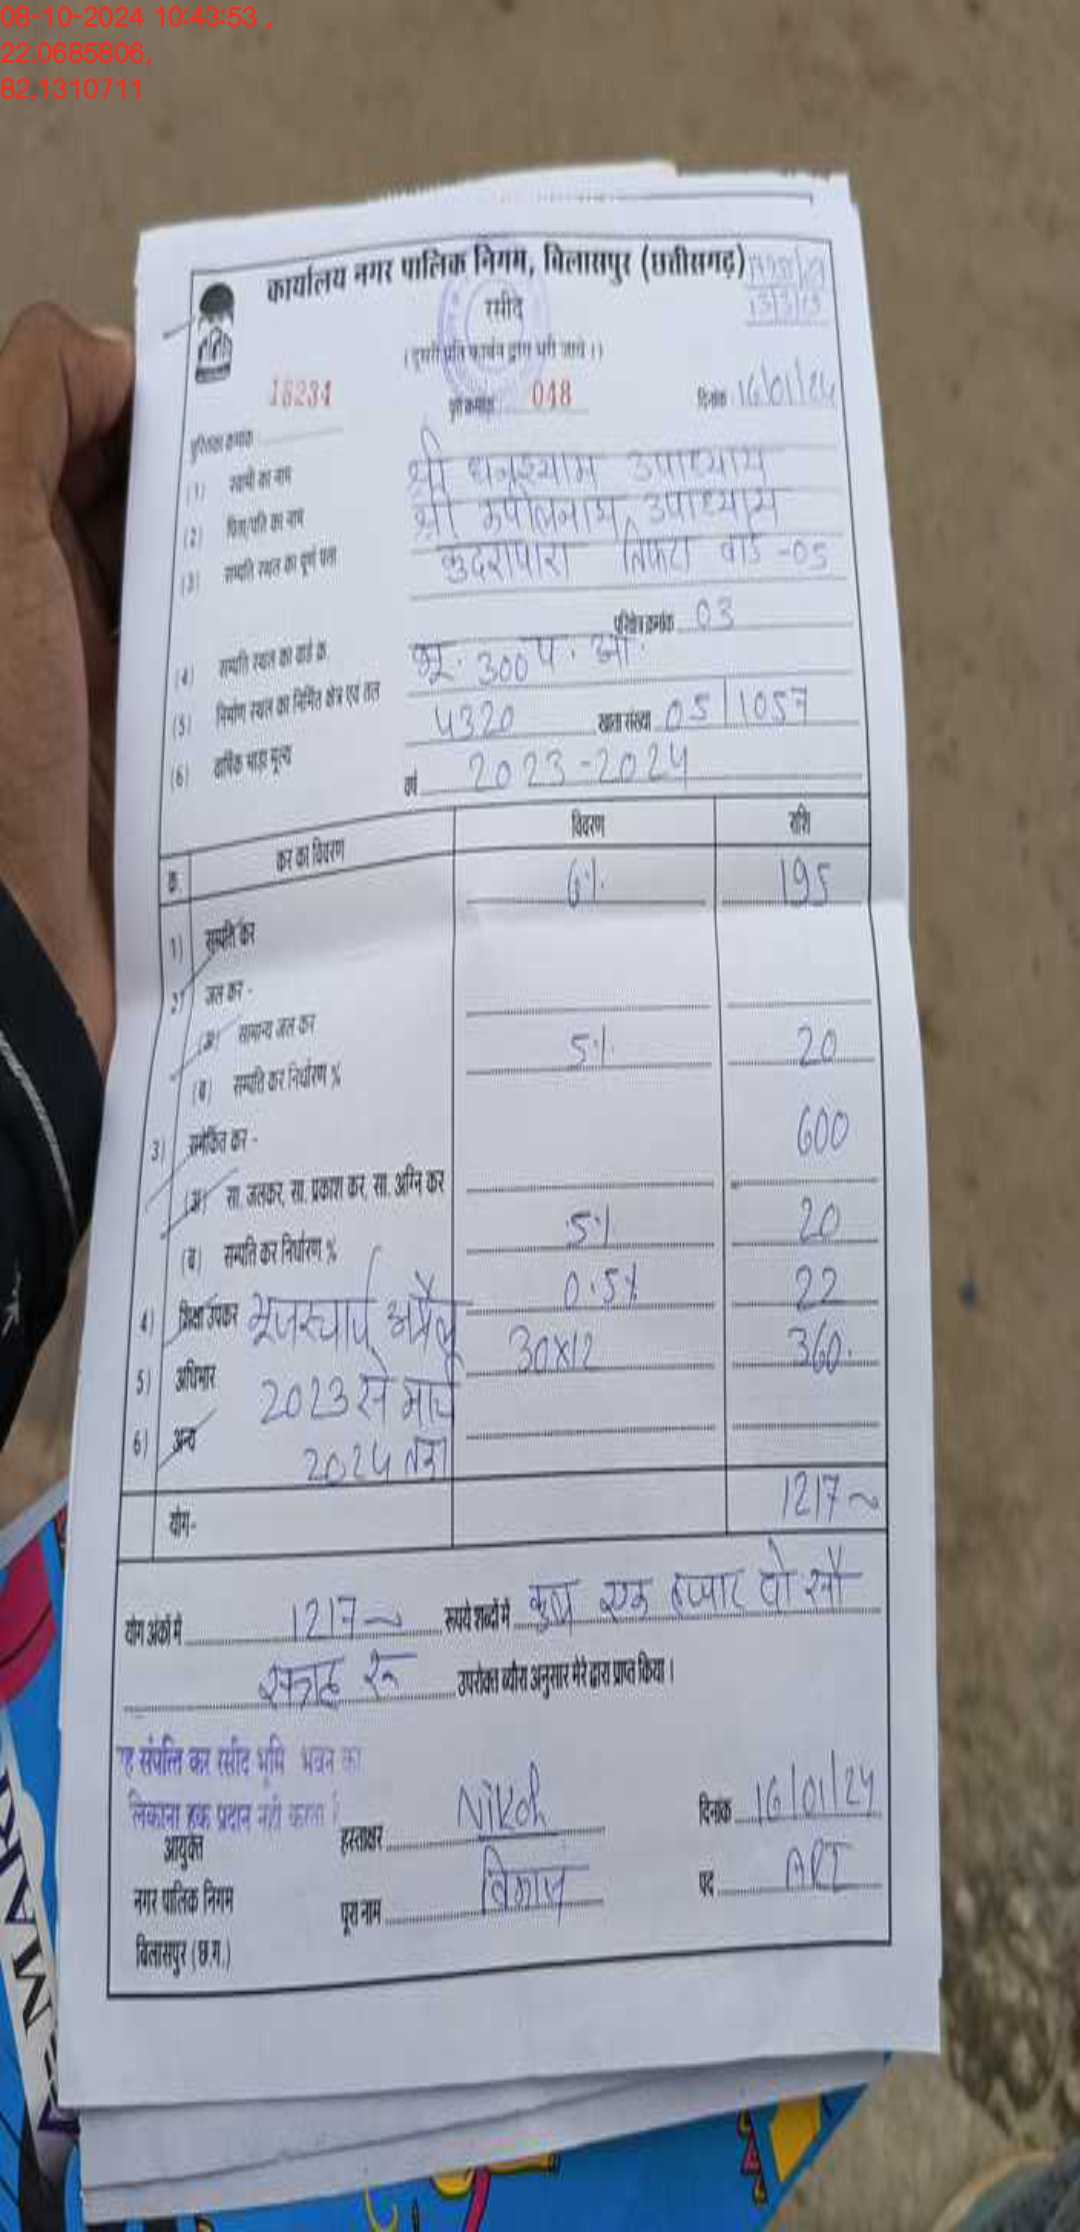 08-10-2024 10:43:53 ,
22.0685806,
82.1310711
कार्यालय नगर पालिक निगम, बिलासपुर (छत्तीसगढ़)
रसीद
(दूसरी प्रति कार्बन द्वारा भरी जावे।)
पुस्तिका क्रमांक 18234 048 दिनांक 16/01/24
(1) स्वामी का नाम श्री घनश्याम उपाध्याय
(2) पिता/पति का नाम श्री उपाध्याय
(3) सम्पत्ति स्थल का पूर्ण पता कुदरापारा तिफरा वार्ड -05
(4) सम्पत्ति स्थल का वार्ड क्र. परिक्षेत्र क्रमांक 03
(5) निर्माण स्थल का निर्मित क्षेत्र एवं तल भू. 300 प. आ.
(6) वार्षिक भाड़ा मूल्य 4320 खाता संख्या 05/1057
वर्ष 2023-2024
क्र. कर का विवरण विवरण राशि
1) सम्पत्ति कर 6% 195
2) जल कर -
(अ) सामान्य जल कर
(ब) सम्पत्ति कर निर्धारण % 5% 20
3) समेकित कर - 600
(अ) सा. जलकर, सा. प्रकाश कर, सा. अग्नि कर
(ब) सम्पत्ति कर निर्धारण % 5% 20
4) शिक्षा उपकर 0.5% 22
5) अधिभार यूजरचार्ज अप्रैल 30x12 360.
6) अन्य 2023 से मार्च
2024 तक
योग- 1217
योग अंकों में 1217 रूपये शब्दों में कुल एक हजार दो सौ
सत्रह रू उपरोक्त ब्यौरा अनुसार मेरे द्वारा प्राप्त किया।
ह संपत्ति कर रसीद भूमि भवन का
लिकाना हक प्रदान नही करता
आयुक्त
नगर पालिक निगम
बिलासपुर (छ.ग.)
हस्ताक्षर दिनांक 16/01/24
पूरा नाम विकास पद ARI